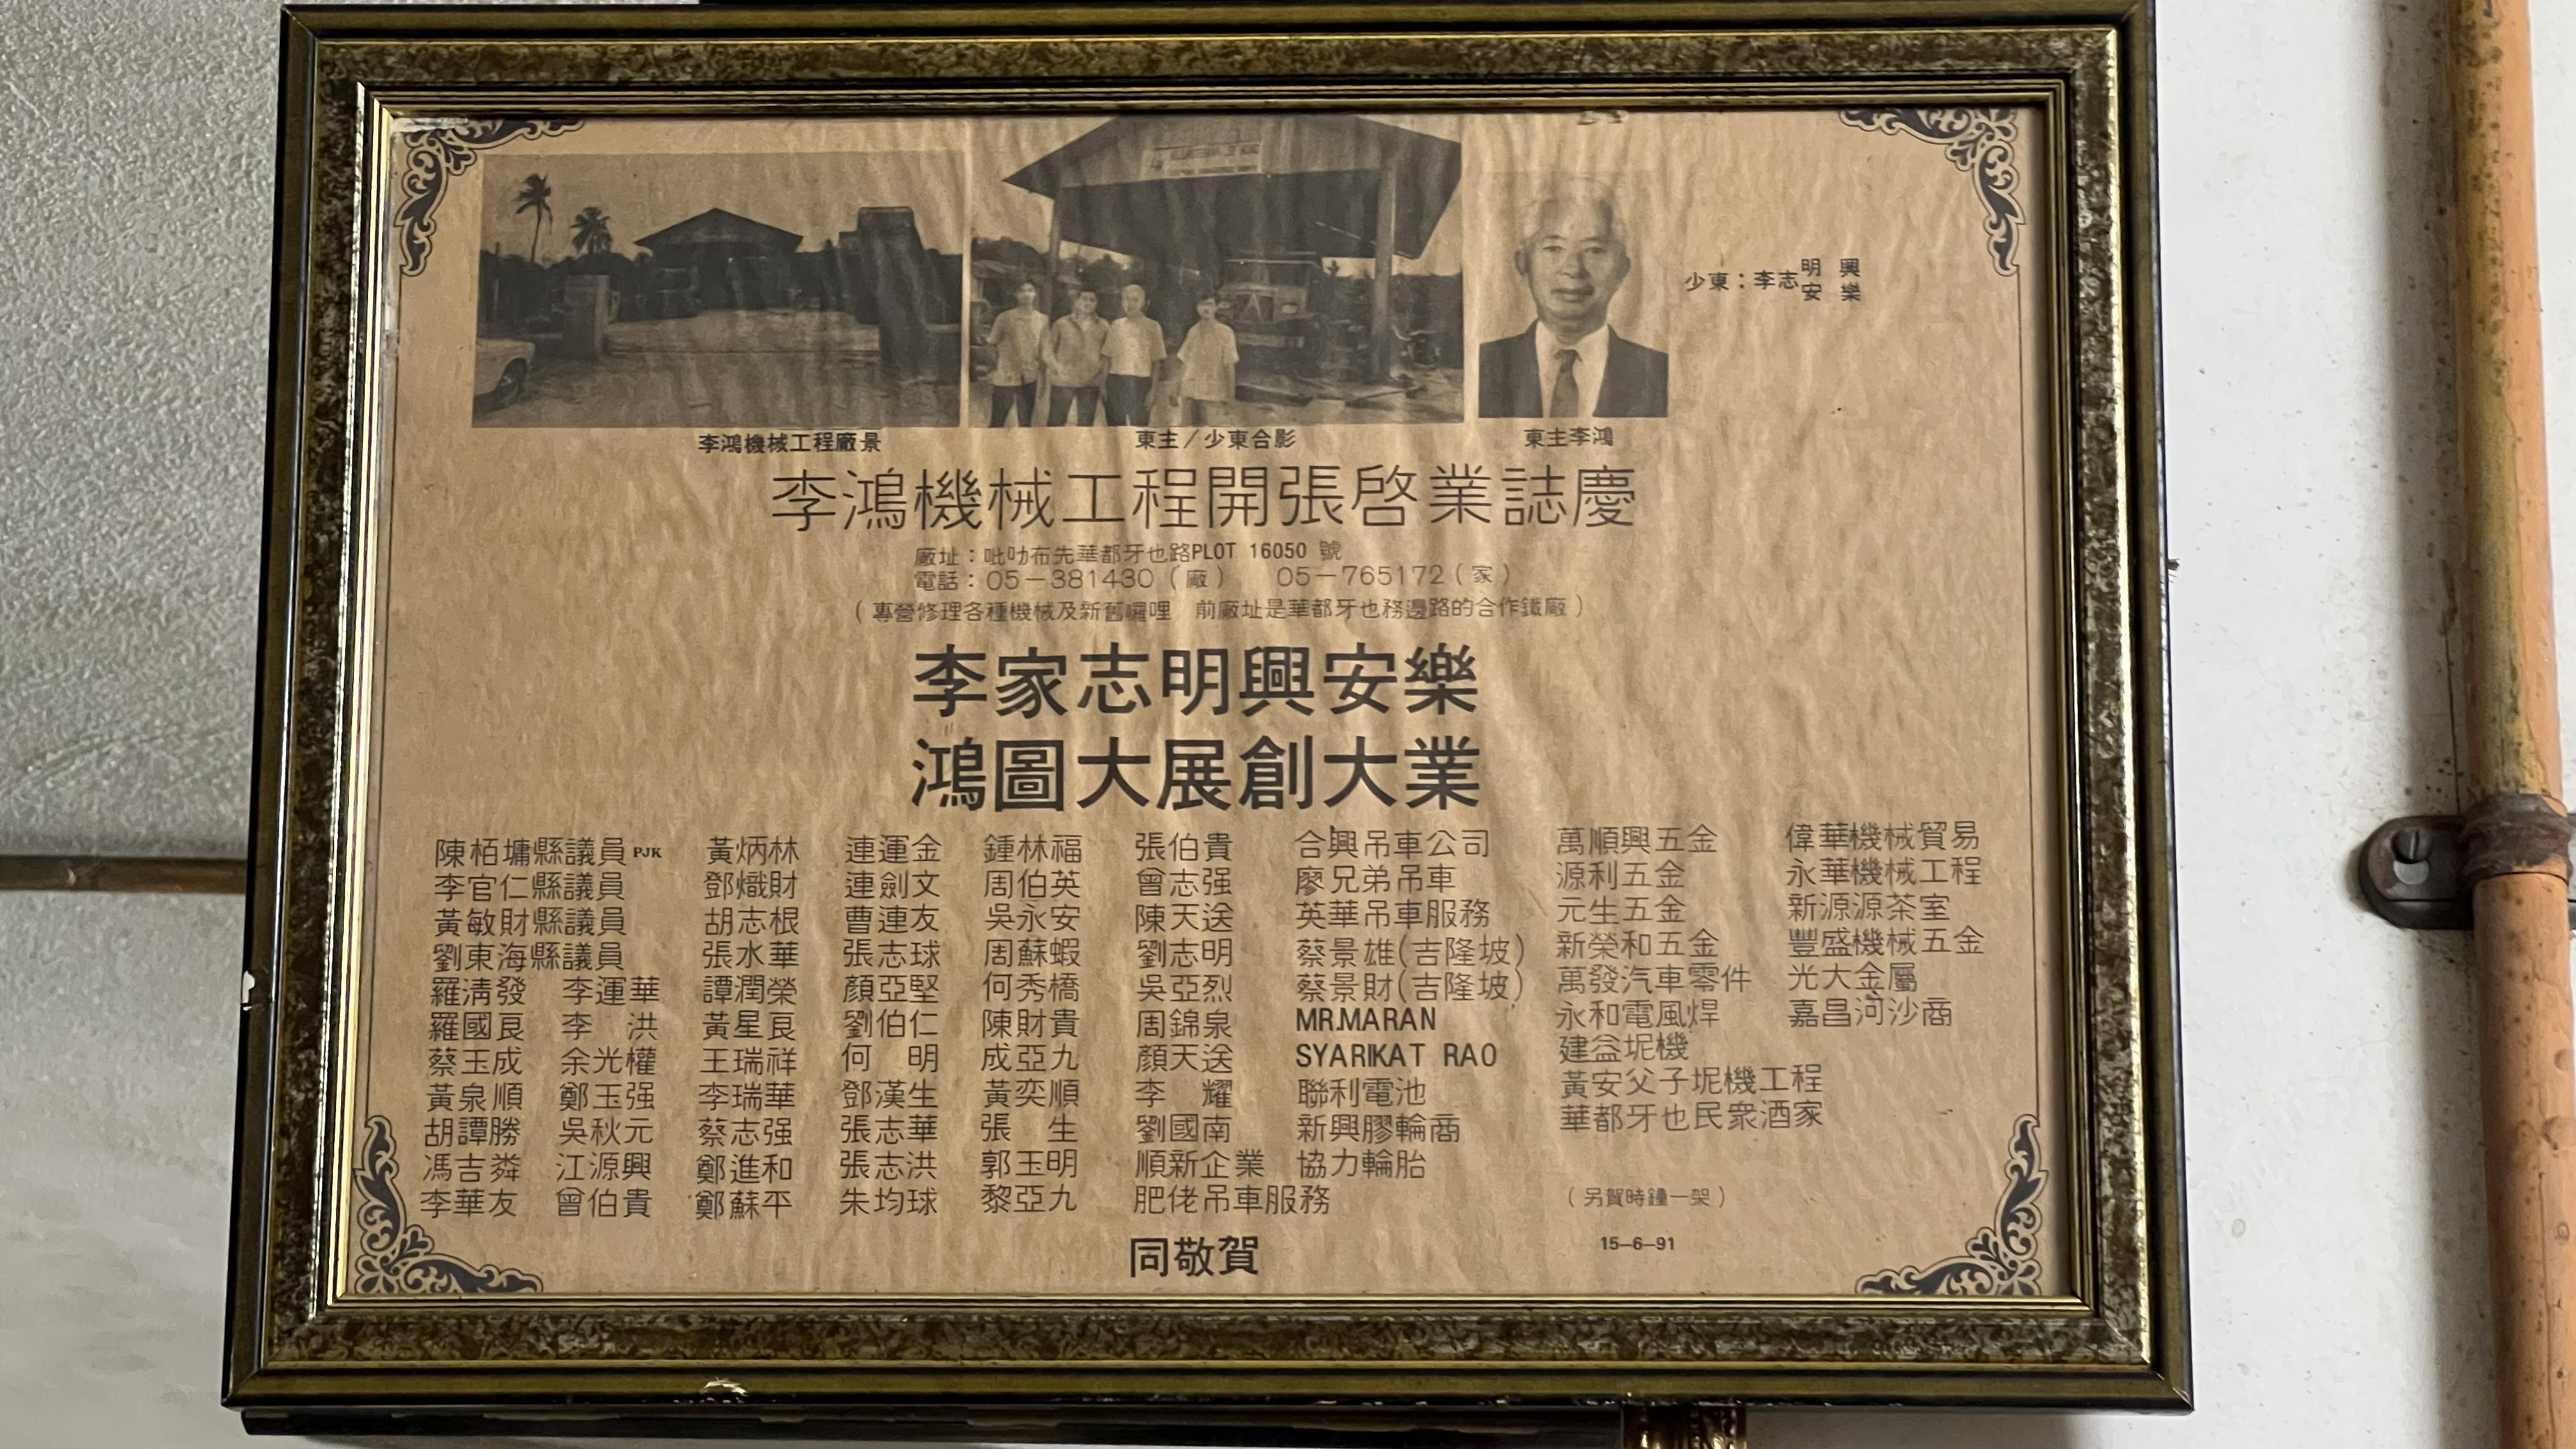 少東：李志明 興
安 樂
李鴻機械工程廠景
東主／少東合影
東主李鴻
李鴻機械工程開張啓業誌慶
廠址：吡叻布先華都牙也路PLOT 16050 號
電話：05－381430（廠） 05－765172（家）
（專營修理各種機械及新舊囉哩 前廠址是華都牙也務邊路的合作鐵廠）
李家志明興安樂
鴻圖大展創大業
陳栢墉縣議員PJK 黃炳林 連運金 鍾林福 張伯貴 合興吊車公司 萬順興五金 偉華機械貿易
李官仁縣議員 鄧熾財 連劍文 周伯英 曾志强 廖兄弟吊車 源利五金 永華機械工程
黃敏財縣議員 胡志根 曹連友 吳永安 陳天送 英華吊車服務 元生五金 新源源茶室
劉東海縣議員 張水華 張志球 周蘇蝦 劉志明 蔡景雄(吉隆坡) 新榮和五金 豐盛機械五金
羅清發 李運華 譚潤榮 顏亞堅 何秀橋 吳亞烈 蔡景財(吉隆坡) 萬發汽車零件 光大金屬
羅國良 李 洪 黃星良 劉伯仁 陳財貴 周錦泉 MR.MARAN 永和電風焊 嘉昌河沙商
蔡玉成 余光權 王瑞祥 何 明 成亞九 顏天送 SYARIKAT RAO 建益坭機
黃泉順 鄭玉强 李瑞華 鄧漢生 黃奕順 李 耀 聯利電池 黃安父子坭機工程
胡譚勝 吳秋元 蔡志强 張志華 張 生 劉國南 新興膠輪商 華都牙也民衆酒家
馮吉粦 江源興 鄭進和 張志洪 郭玉明 順新企業 協力輪胎
李華友 曾伯貴 鄭蘇平 朱均球 黎亞九 肥佬吊車服務 （另賀時鐘一架）
同敬賀
15–6–91